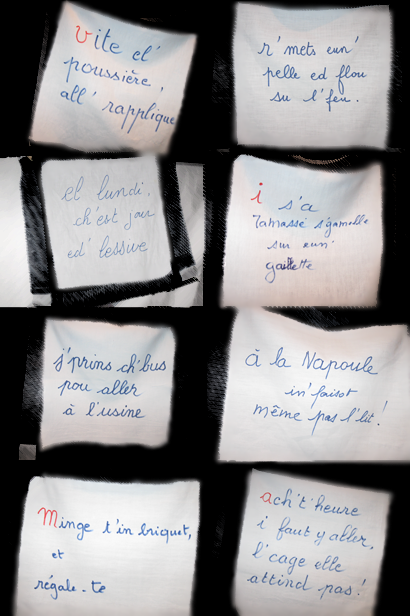 Vite el'
poussière,
all' rapplique
r'mets eun'
pelle ed flou
su l'feu.
el lundi,
ch'est jour
ed' lessive
i s'a
ramassé s'gamelle
sur eun'
gaillette
j'prins ch'bus
pou aller
à l'usine
à la Napoule
in' faisot
même pas l'lit!
Minge t'in briquet,
et
régale-te
ach't'heure
i faut y aller,
l'cage elle
attind pas!